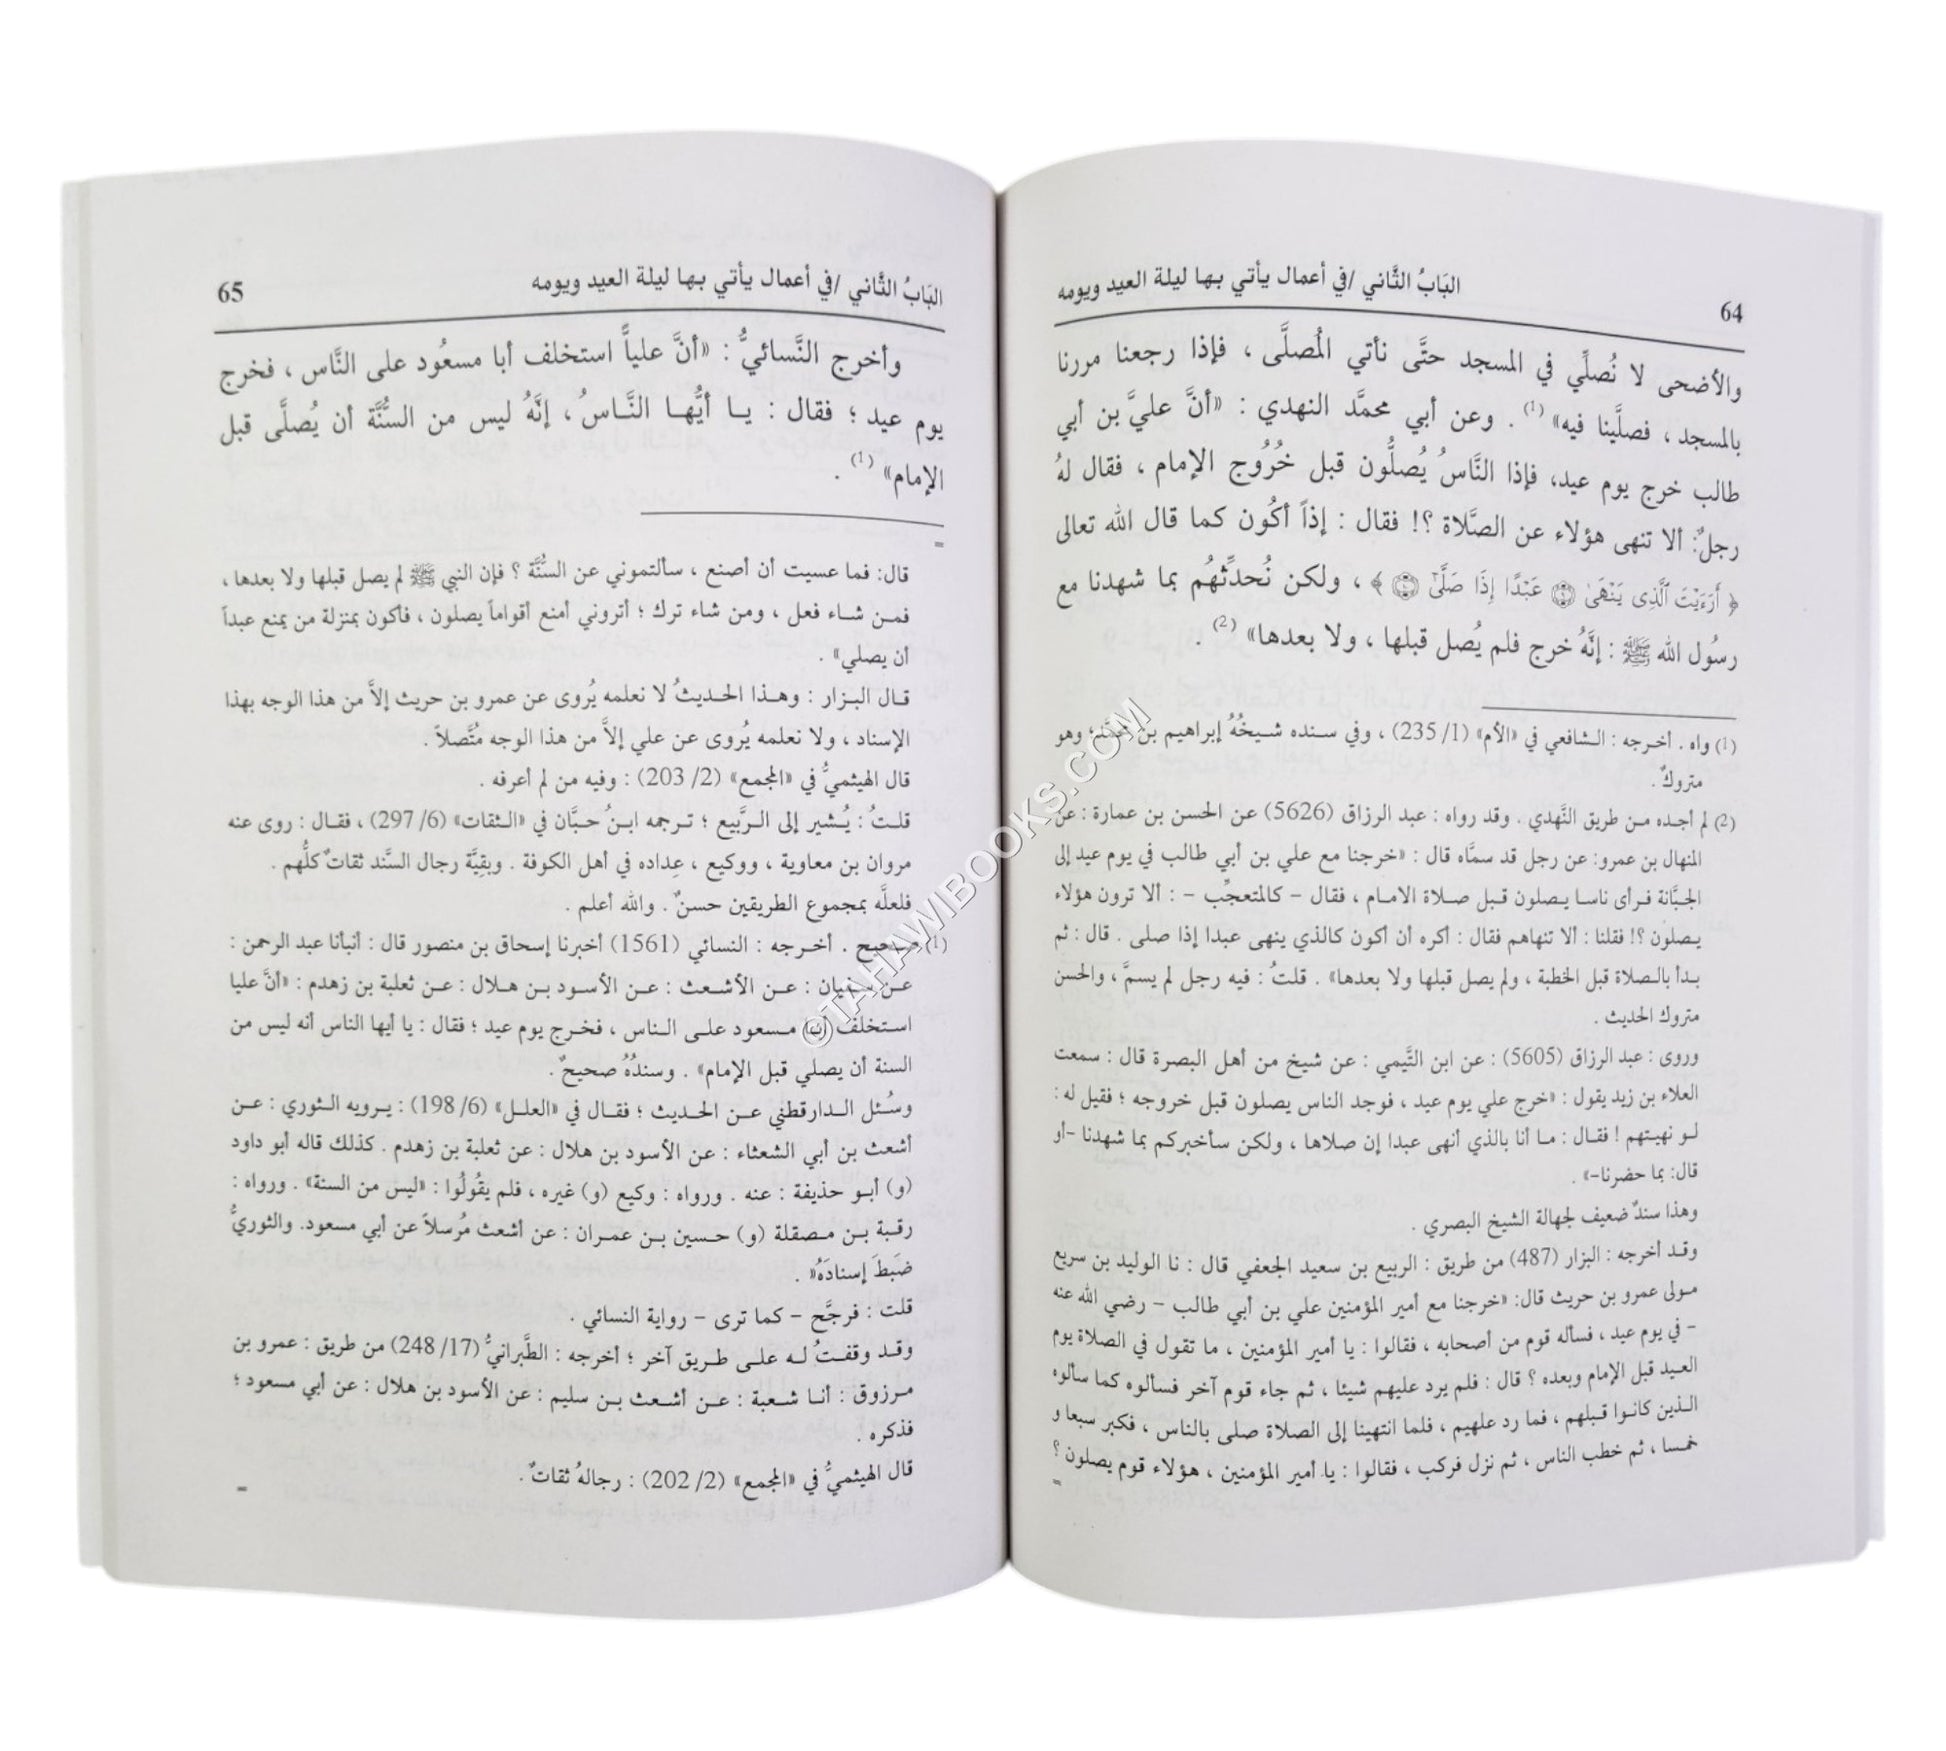 64
البَابُ الثَّاني /في أعمال يأتي بها ليلة العيد ويومه
والأضحى لا نُصلِّي في المسجد حتَّى نأتي المُصلَّى ، فإذا رجعنا مررنا
بالمسجد ، فصلَّينا فيه» (1) . وعن أبي محمَّد النهدي : «أنَّ عليَّ بن أبي
طالب خرج يوم عيد، فإذا النَّاسُ يُصلُّون قبل خُرُوج الإمام ، فقال لهُ
رجلٌ: ألا تنهى هؤلاء عن الصَّلاة ؟! فقال : إذاً أكُون كما قال الله تعالى
﴿ أَرَءَيْتَ ٱلَّذِى يَنْهَىٰ ۝ عَبْدًا إِذَا صَلَّىٰٓ ۝ ﴾ ، ولكن نُحدِّثهُم بما شهدنا مع
رسُول الله ﷺ : إنَّهُ خرج فلم يُصل قبلها ، ولا بعدها» (2) .
(1) واه . أخرجه : الشافعي في «الأم» (1/ 235) ، وفي سنده شيخُهُ إبراهيم بن محمَّد؛ وهو
متروكٌ .
(2) لم أجده من طريق النَّهدي . وقد رواه : عبد الرزاق (5626) عن الحسن بن عمارة : عن
المنهال بن عمرو: عن رجل قد سمَّاه قال : «خرجنا مع علي بن أبي طالب في يوم عيد إلى
الجبَّانة فرأى ناسا يصلون قبل صلاة الامام ، فقال – كالمتعجِّب – : ألا ترون هؤلاء
يصلون ؟! فقلنا : ألا تنهاهم فقال : أكره أن أكون كالذي ينهى عبدا إذا صلى . قال : ثم
بدأ بالصلاة قبل الخطبة ، ولم يصل قبلها ولا بعدها» . قلتُ : فيه رجل لم يسمَّ ، والحسن
متروك الحديث .
وروى : عبد الرزاق (5605) : عن ابن التَّيمي : عن شيخ من أهل البصرة قال : سمعت
العلاء بن زيد يقول : «خرج علي يوم عيد ، فوجد الناس يصلون قبل خروجه ؛ فقيل له :
لو نهيتهم ! فقال : ما أنا بالذي أنهى عبدا إن صلاها ، ولكن سأخبركم بما شهدنا -أو
قال: بما حضرنا-» .
وهذا سندٌ ضعيف لجهالة الشيخ البصري .
وقد أخرجه : البزار (487) من طريق : الربيع بن سعيد الجعفي قال : نا الوليد بن سريع
مولى عمرو بن حريث قال: «خرجنا مع أمير المؤمنين علي بن أبي طالب – رضي الله عنه
– في يوم عيد ، فسأله قوم من أصحابه ، فقالوا : يا أمير المؤمنين ، ما تقول في الصلاة يوم
العيد قبل الإمام وبعده ؟ قال : فلم يرد عليهم شيئا ، ثم جاء قوم آخر فسألوه كما سألوه
الذين كانوا قبلهم ، فما رد علهيم ، فلما انتهينا إلى الصلاة صلى بالناس ، فكبر سبعا و
خمسا ، ثم خطب الناس ، ثم نزل فركب ، فقالوا : يا أمير المؤمنين ، هؤلاء قوم يصلون ؟
=
65
البَابُ الثَّاني /في أعمال يأتي بها ليلة العيد ويومه
وأخرج النَّسائيُّ : «أنَّ علياً استخلف أبا مسعُود على النَّاس ، فخرج
يوم عيد ؛ فقال : يا أيُّها النَّاسُ ، إنَّهُ ليس من السُّنَّة أن يُصلَّى قبل
الإمام» (1) .
=
قال: فما عسيت أن أصنع ، سألتموني عن السُّنَّة ؟ فإن النبي ﷺ لم يصل قبلها ولا بعدها ،
فمن شاء فعل ، ومن شاء ترك ؛ أتروني أمنع أقواماً يصلون ، فأكون بمنزلة من يمنع عبداً
أن يصلي» .
قال البزار : وهذا الحديثُ لا نعلمه يُروى عن عمرو بن حريث إلاَّ من هذا الوجه بهذا
الإسناد ، ولا نعلمه يُروى عن علي إلاَّ من هذا الوجه مُتَّصلاً .
قال الهيثميُّ في «المجمع» (2/ 203) : وفيه من لم أعرفه .
قلتُ : يُشير إلى الرَّبيع ؛ ترجمه ابنُ حبَّان في «الثقات» (6/ 297) ، فقال : روى عنه
مروان بن معاوية ، ووكيع ، عِداده في أهل الكوفة . وبقِيَّة رجال السَّند ثقاتٌ كلُّهم .
فلعلَّه بمجموع الطريقين حسنٌ . والله أعلم .
(1) صحيح . أخرجه : النسائي (1561) أخبرنا إسحاق بن منصور قال : أنبأنا عبد الرحمن :
عن سفيان : عن الأشعث : عن الأسود بن هلال : عن ثعلبة بن زهدم : «أنَّ عليا
استخلف أبا مسعود على الناس ، فخرج يوم عيد ؛ فقال : يا أيها الناس أنه ليس من
السنة أن يصلي قبل الإمام» . وسندُهُ صحيحٌ .
وسُئل الدارقطني عن الحديث ؛ فقال في «العلل» (6/ 198) : يرويه الثوري : عن
أشعث بن أبي الشعثاء : عن الأسود بن هلال : عن ثعلبة بن زهدم . كذلك قاله أبو داود
(و) أبو حذيفة : عنه . ورواه : وكيع (و) غيره ، فلم يقُولُوا : «ليس من السنة» . ورواه :
رقبة بن مصقلة (و) حسين بن عمران : عن أشعث مُرسلاً عن أبي مسعود. والثوريُّ
ضَبَطَ إسنادَهُ» .
قلت : فرجَّح – كما ترى – رواية النسائي .
وقد وقفتُ له على طريق آخر ؛ أخرجه : الطَّبرانيُّ (17/ 248) من طريق : عمرو بن
مرزوق : أنا شعبة : عن أشعث بن سليم : عن الأسود بن هلال : عن أبي مسعود ؛
فذكره .
قال الهيثميُّ في «المجمع» (2/ 202) : رجالهُ ثقاتٌ .
=
©TAHAWIBOOKS.COM